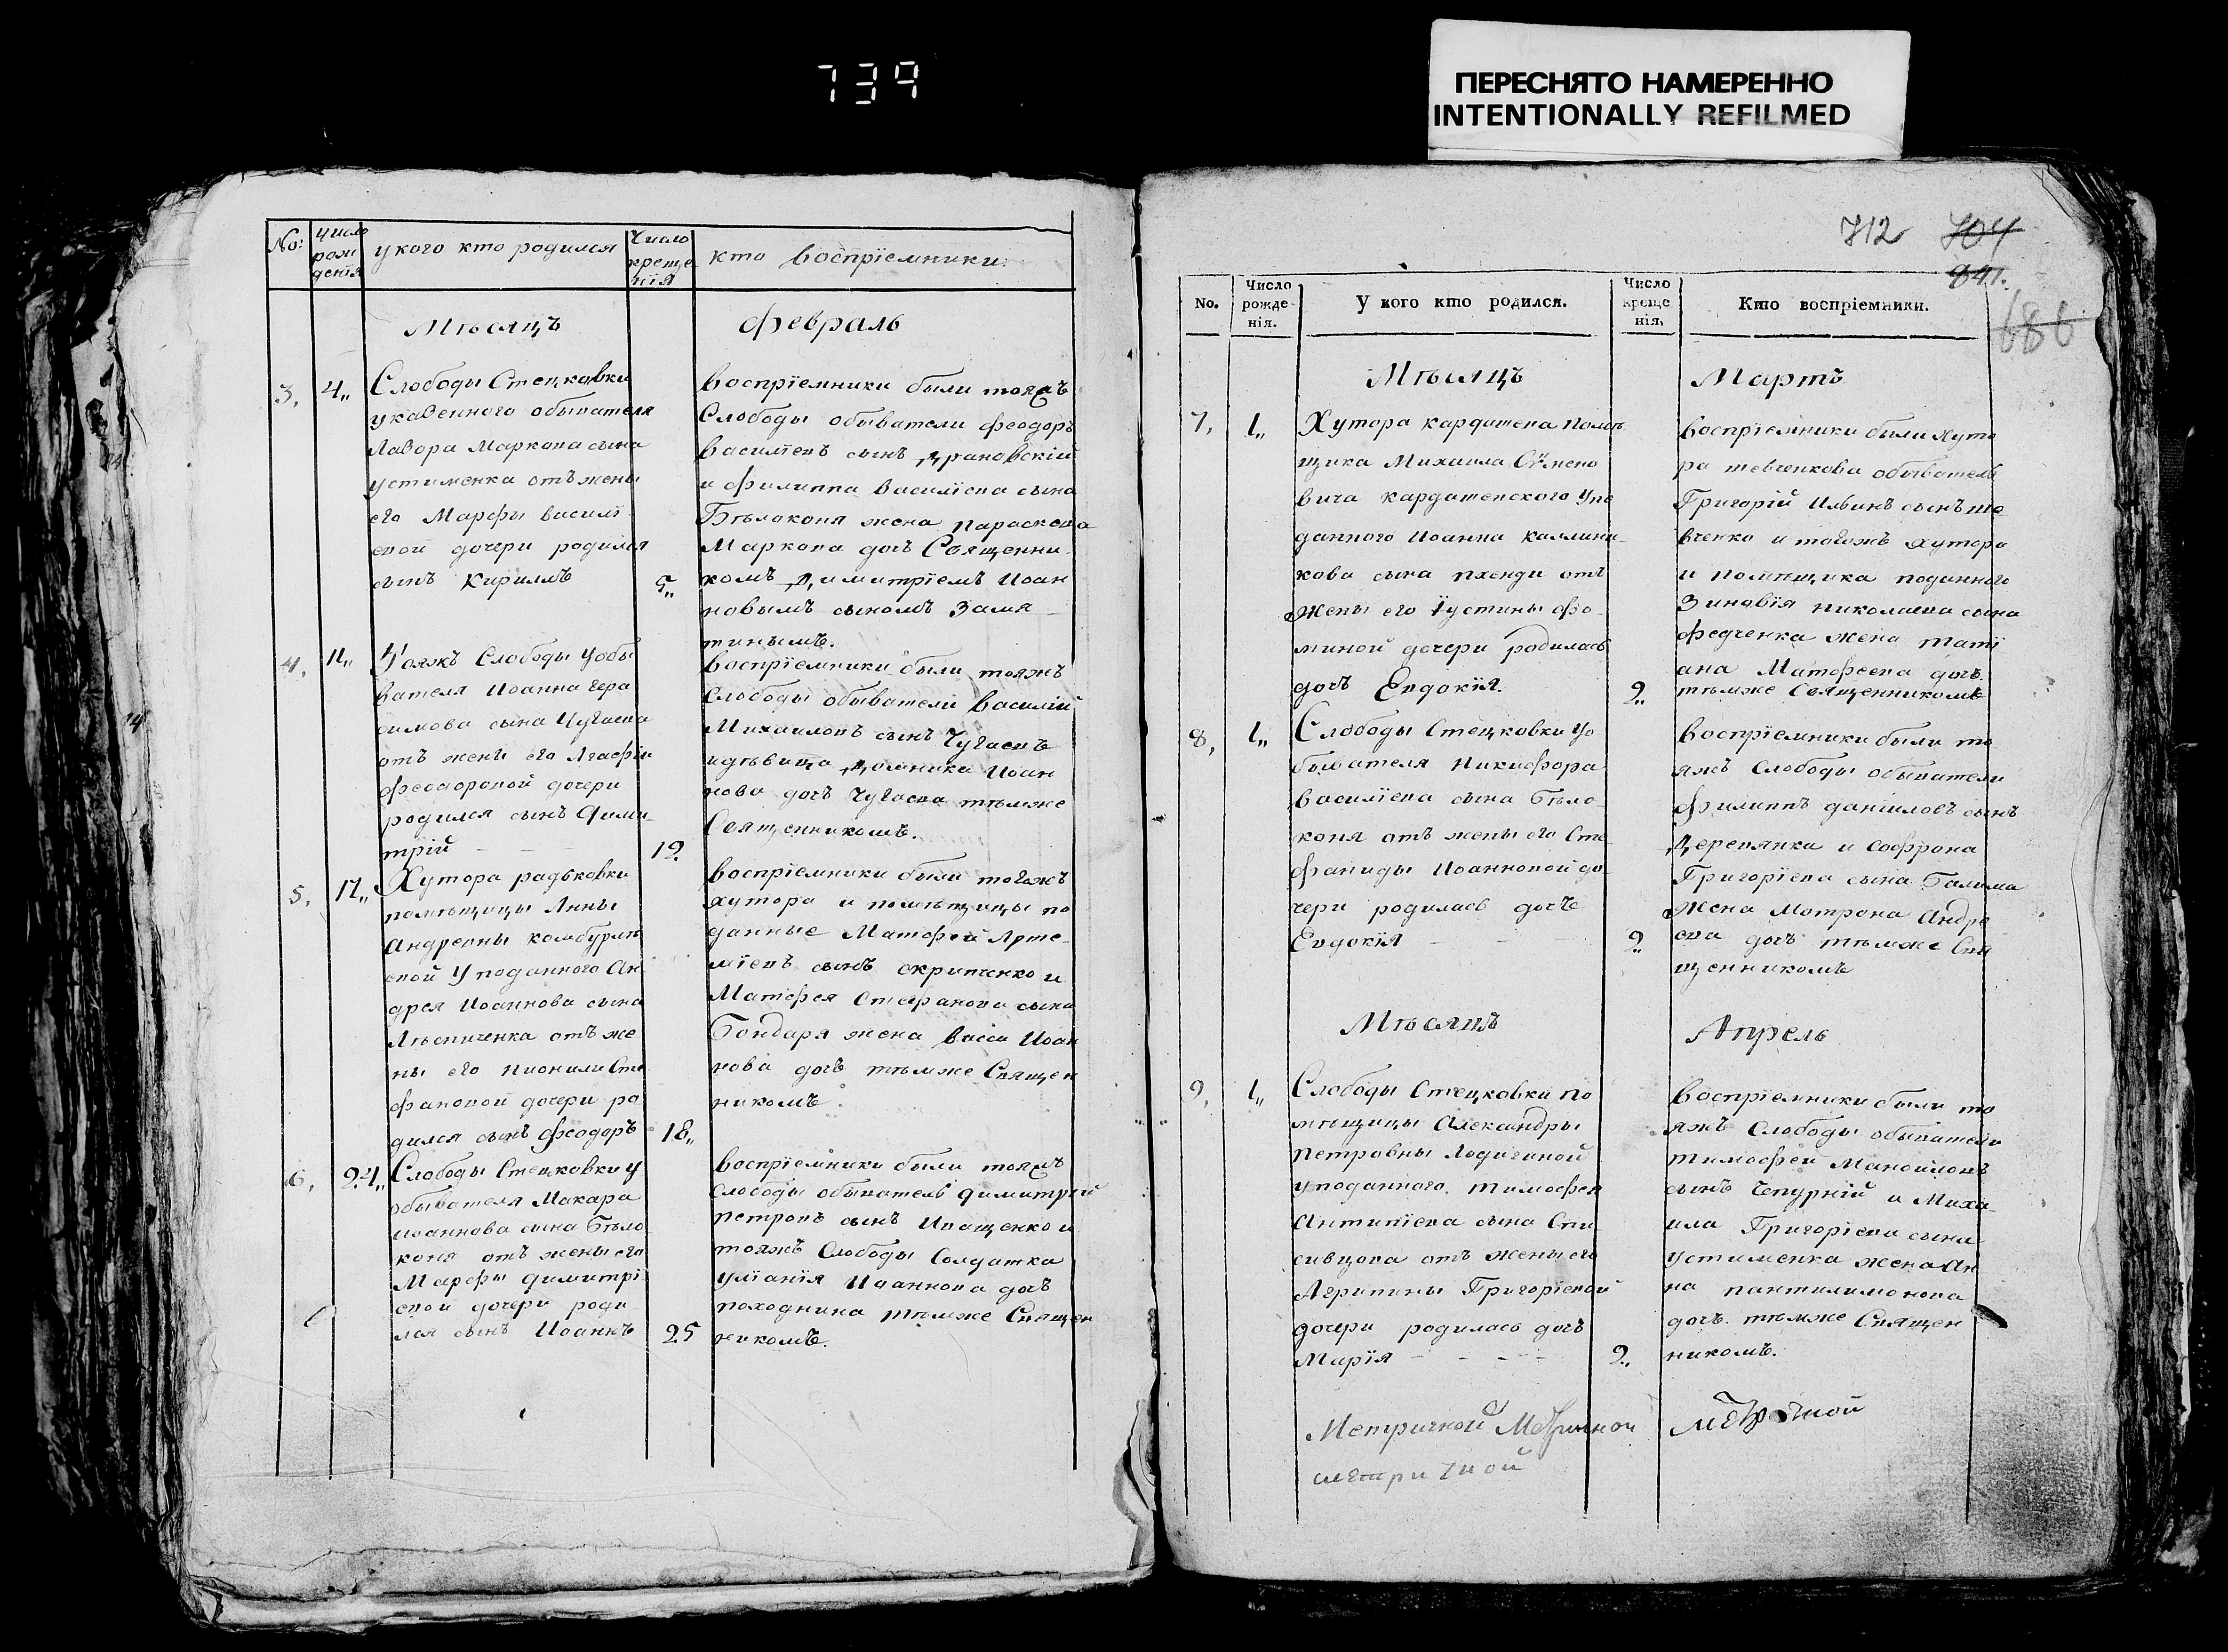 739
ПЕРЕСНЯТО НАМЕРЕННО
INTENTIONALLY REFILMED
No:
Число
рож
денія
у кого кто родился
Число
креще
нія
кто воспріемники.
Мѣсяцъ
февраль
3,
4,,
Слободы Стецковки
указенного обывателя
Лавора Маркова сына
устименка отъ жены
его Марфы василі
евой дочери родился
сынъ Кириллъ
5,,
воспріемники были тояжъ
Слободы обыватели феодоръ
василіевъ сынъ
и филиппа василіева сына
Бѣлоконя жена параскева
Маркова дочь Священни
комъ димитріемъ Иоан
новымъ сыномъ Замя
тинымъ.
4,
11,,
Тояжъ Слободы у обы
вателя Иоанна гера
симова сына Чугаева
отъ жены его Агафіи
феодоровой дочери
родился сынъ Дими
трій
12
воспріемники были тояжъ
Слободы обыватели василій
Михаиловъ сынъ Чугаевъ
идѣвица домника Иоан
нова дочь Чугаева тѣмже
Священникомъ.
5,
17,,
Хутора радьковки
помѣщицы Анны
Андревны комбурлѣ
евой у поданного Ан
дрея Иоаннова сына
отъ же
ны его пионили Сте
фановой дочери ро
дился сынъ феодоръ
18,,
воспріемники были тогожъ
хутора и помѣщицы по
данные Матфей Арте
міевъ сынъ скрипченко и
Матфея Стефанова сына
Бондаря жена васса Иоан
нова дочь тѣмже Священ
никомъ.
6,
24,,
Слободы Стецковки у
обывателя Макара
иоаннова сына Бѣло
коня отъ жены его
Марфы димитрі
евой дочери роди
лся сынъ Иоаннъ
25
воспріемники были тояжъ
слободы обыватель димитрий
петровъ сынъ Иващенко и
тояжъ Слободы Солдатка
уліанія Иоаннова дочь
походнина тѣмже Священ
никомъ.
712 704
841.
686
No.
Число
рожде-
нія.
У кого кто родился.
Число
креще
нія.
Кто воспріемники.
Мѣсяцъ
Мартъ
7,
1,,
Хутора кардашева помѣ
щика Михаила Семено
вича кардашевского у по
данного Иоанна каллини
кова сына отъ
жены его Іустины фо
миной дочери родилась
дочь Евдокія.
2,,
воспріемники были хуто
ра шевченкова обыватель
Григорій Ильинъ сынъ ше
вченко и тогожъ хутора
и помѣщика поданного
Зиновія николаева сына
федченка жена тати
ана Матфеева дочь.
тѣмже Священникомъ
8,
1,,
Слободы Стецковки у о
бывателя никифора
василіева сына бѣло
коня отъ жены его Сте
фаниды Иоанновой до
чери родилась дочь
Евдокія
2
воспріемники были то
яжъ Слободы обыватели
филиппъ даніиловъ сынъ
Деревянка и софрона
Григоріева сына
жена Мотрона Андре
ева дочь тѣмже Свя
щенникомъ
Мѣсяцъ
Апрель
9,
1,,
Слободы Стецковки по
мѣщицы Александры
петровны Лодыгиной
у поданного тимофея
Антипіева сына Спи
сивцова отъ жены его
Агрипины Григоріевой
дочери родилась дочь
Марія
2,,
воспріемники были то
яжъ Слободы обыватели
тимофей Мануиловъ
сынъ Чепурній и Миха
ила Григоріева сына
устименка жена Ан
на пантилимонова
дочь. тѣмже Священ
никомъ.
Метричной Метричной
метричной
метричной